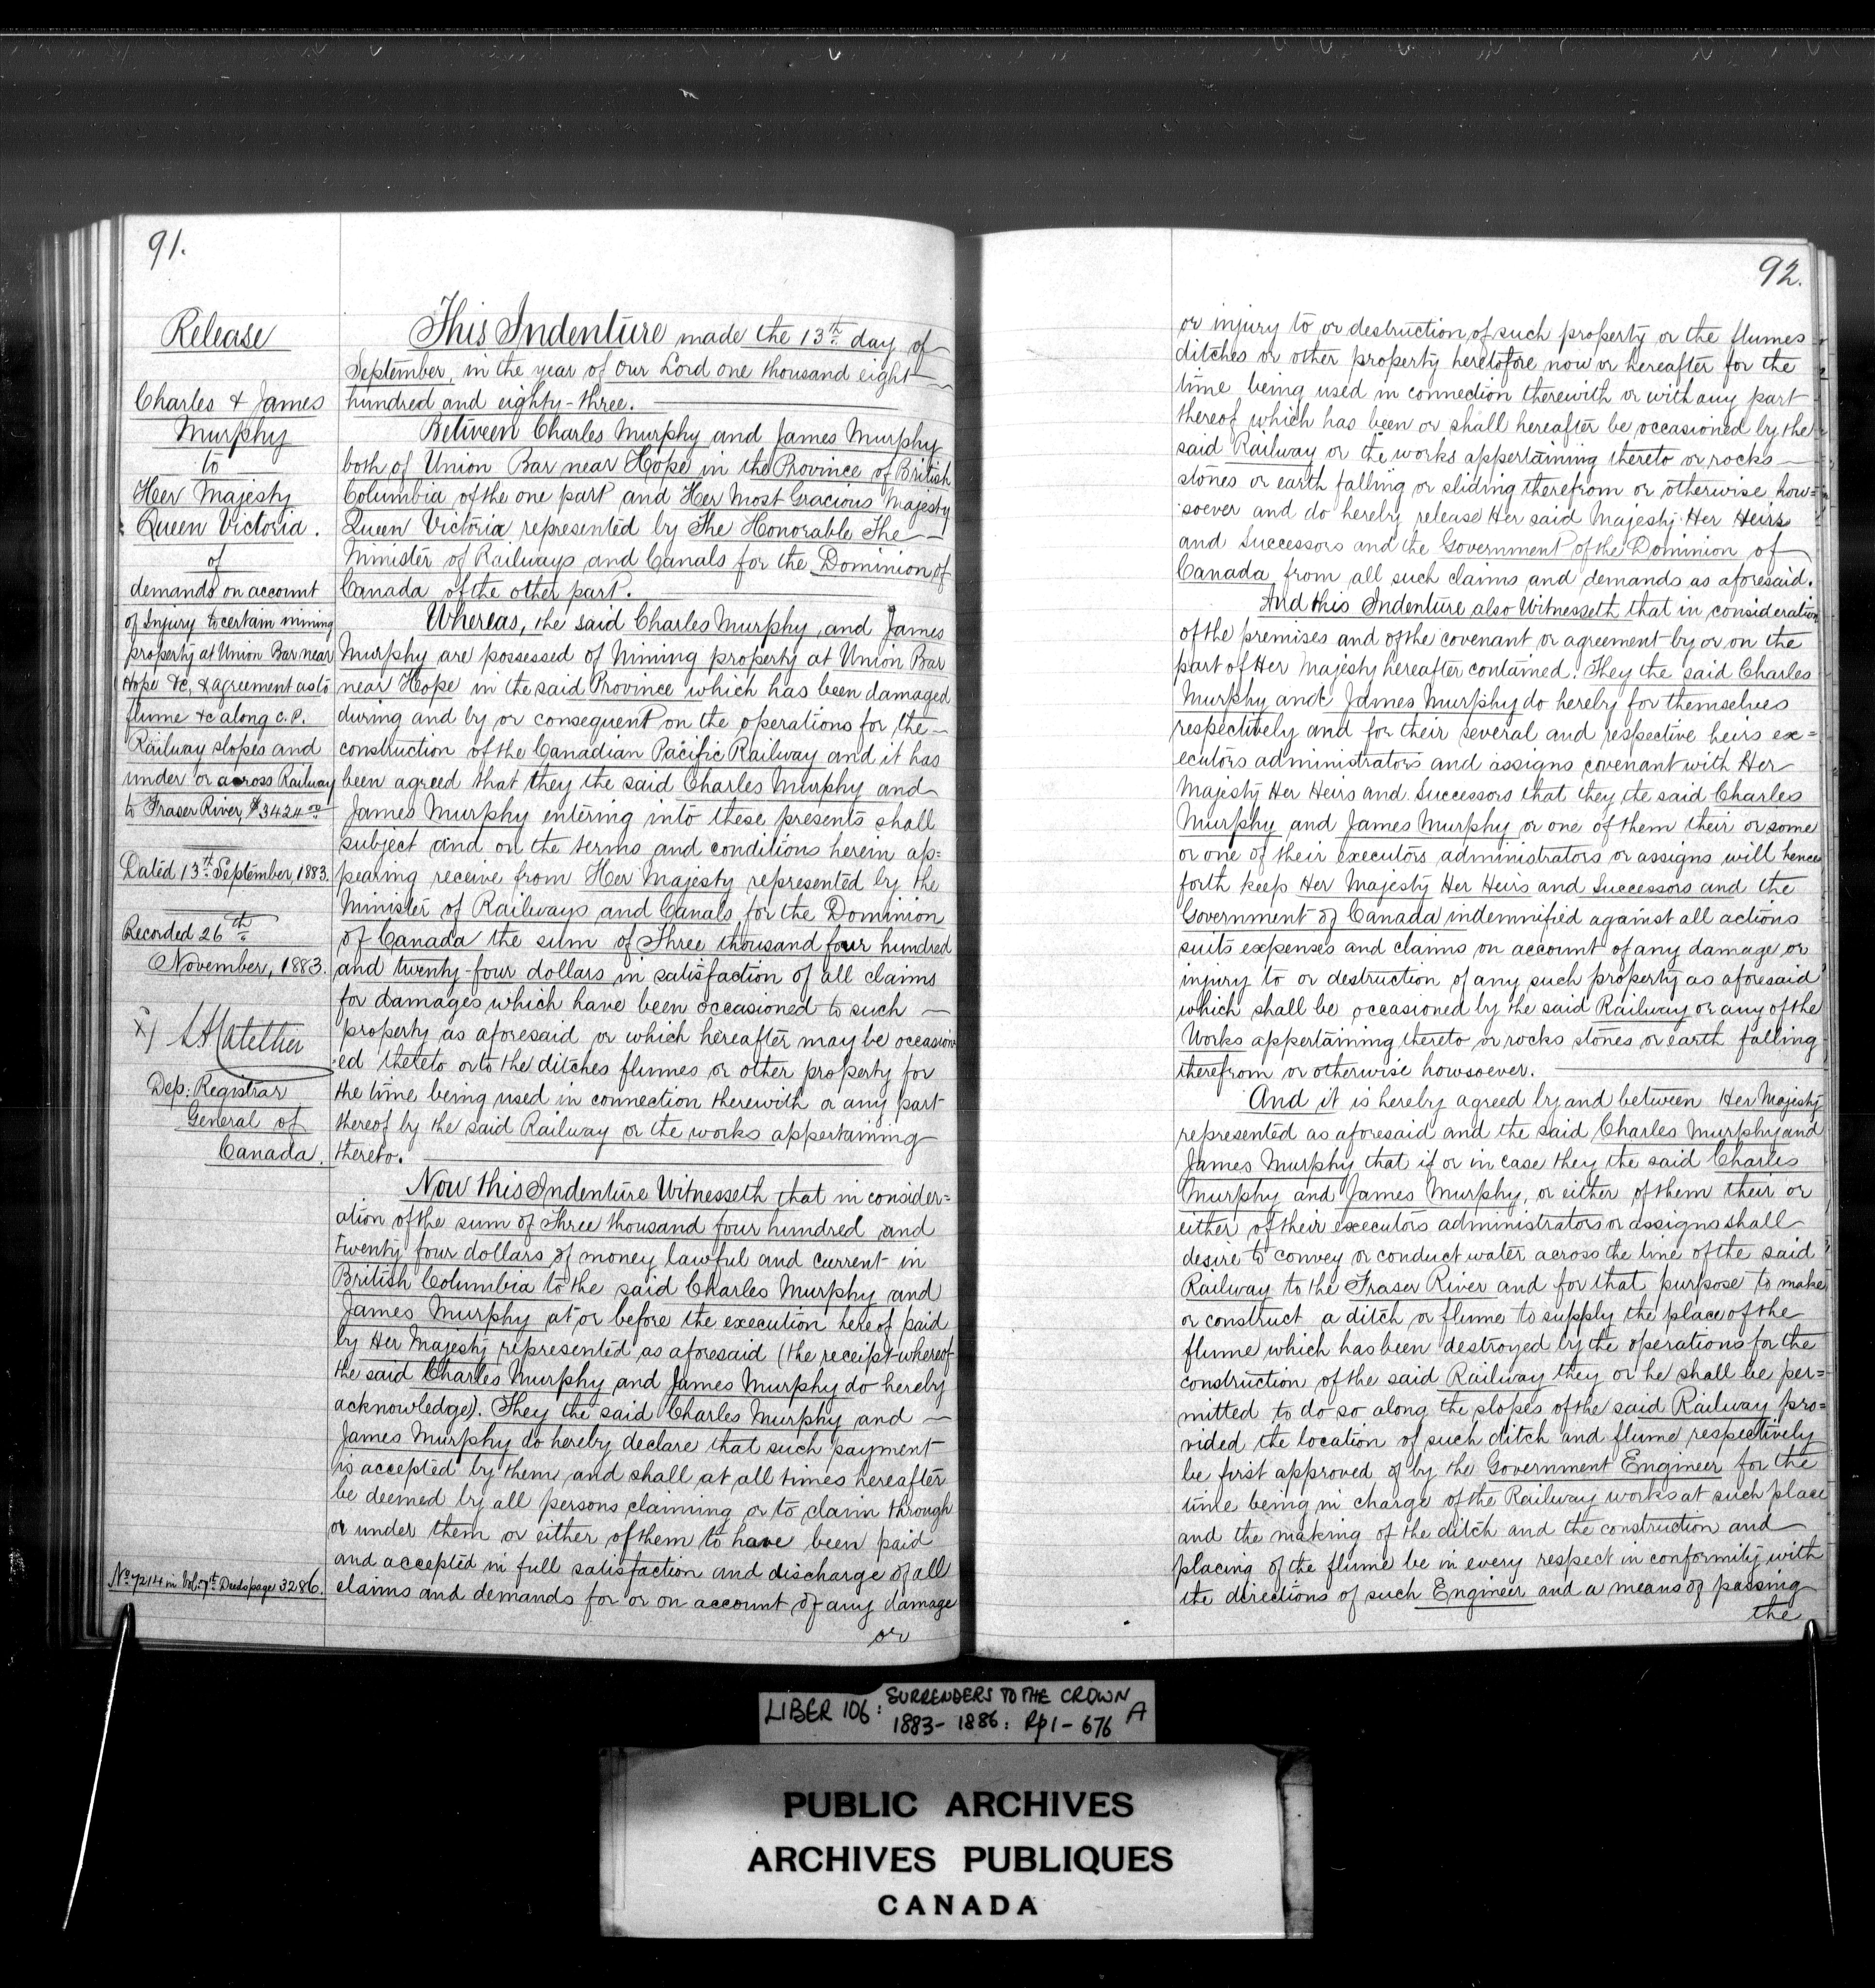 91.
Release
Charles & James
Murphy
to
Her Majesty
Queen Victoria.
of
demands on account
of Injury to certain mining
property at Union Bar near
Hope &c, & agreement as to
flume &c along C.P.
Railway slopes and
under or across Railway
to Fraser River, $3424.00
Dated 13th September, 1883.
Recorded 26th
November, 1883.
Dep: Registrar
General of
Canada.
No 7214 in Vol. 7th Deeds page 3286.
This Indenture made the 13th day of
September, in the year of Our Lord one thousand eight
hundred and eighty-three.
Between Charles Murphy and James Murphy
both of Union Bar near Hope in the Province of British
Columbia of the one part and Her Most Gracious Majesty
Queen Victoria represented by The Honorable The
Minister of Railways and Canals for the Dominion of
Canada of the other part.
Whereas, the said Charles Murphy, and James
Murphy are possessed of Mining property at Union Bar
near Hope in the said Province which has been damaged
during and by or consequent on the operations for the
construction of the Canadian Pacific Railway and it has
been agreed that they the said Charles Murphy and
James Murphy entering into these presents shall
subject and on the terms and conditions herein ap=
pearing receive from Her Majesty represented by the
Minister of Railways and Canals for the Dominion
of Canada the sum of Three thousand four hundred
and twenty-four dollars in satisfaction of all claims
for damages which have been occasioned to such
property as aforesaid or which hereafter may be occasion
ed thereto or to the ditches flumes or other property for
the time being used in connection therewith or any part
thereof by the said Railway or the works appertaining
thereto.
Now this Indenture Witnesseth that in consider=
ation of the sum of Three thousand four hundred and
twenty four dollars of money lawful and current in
British Columbia to the said Charles Murphy and
James Murphy at or before the execution hereof paid
by Her Majesty represented as aforesaid (the receipt whereof
the said Charles Murphy and James Murphy do hereby
acknowledge). They the said Charles Murphy and
James Murphy do hereby declare that such payment
is accepted by them and shall at all times hereafter
be deemed by all persons claiming or to claim through
or under them or either of them to have been paid
and accepted in full satisfaction and discharge of all
claims and demands for or on account of any damage
or
92.
or injury to or destruction of such property or the flumes
ditches or other property heretofore now or hereafter for the
time being used in connection therewith or with any part
thereof which has been or shall hereafter be occasioned by the
said Railway or the works appertaining thereto or rocks
stones or earth falling or sliding therefrom or otherwise how=
soever and do hereby release Her said Majesty Her Heirs
and Successors and the Government of the Dominion of
Canada from all such claims and demands as aforesaid.
And this Indenture also Witnesseth that in consideration
of the premises and of the covenant or agreement by or on the
part of Her Majesty hereafter contained. They the said Charles
Murphy and James Murphy do hereby for themselves
respectively and for their several and respective heirs ex=
ecutors administrators and assigns covenant with Her
Majesty Her Heirs and Successors that they the said Charles
Murphy and James Murphy or one of them their or some
or one of their executors administrators or assigns will hence
forth keep Her Majesty Her Heirs and Successors and the
Government of Canada indemnified against all actions
suits expenses and claims on account of any damage or
injury to or destruction of any such property as aforesaid
which shall be occasioned by the said Railway or any of the
Works appertaining thereto or rocks stones or earth falling
therefrom or otherwise howsoever.
And it is hereby agreed by and between Her Majesty
represented as aforesaid and the said Charles Murphy and
James Murphy that if or in case they the said Charles
Murphy and James Murphy, or either of them their or
either of their executors administrators or assigns shall
desire to convey or conduct water across the line of the said
Railway to the Fraser River and for that purpose to make
or construct a ditch or flume to supply the place of the
flume which has been destroyed by the operations for the
construction of the said Railway they or he shall be per=
mitted to do so along the slopes of the said Railway pro=
vided the location of such ditch and flume respectively
be first approved of by the Government Engineer for the
time being in charge of the Railway works at such place
and the making of the ditch and the construction and
placing of the flume be in every respect in conformity with
the directions of such Engineer and a means of passing
the
LIBER 106: SURRENDERS TO THE CROWN
1883-1886: Rp1-676 A
PUBLIC ARCHIVES
ARCHIVES PUBLIQUES
CANADA